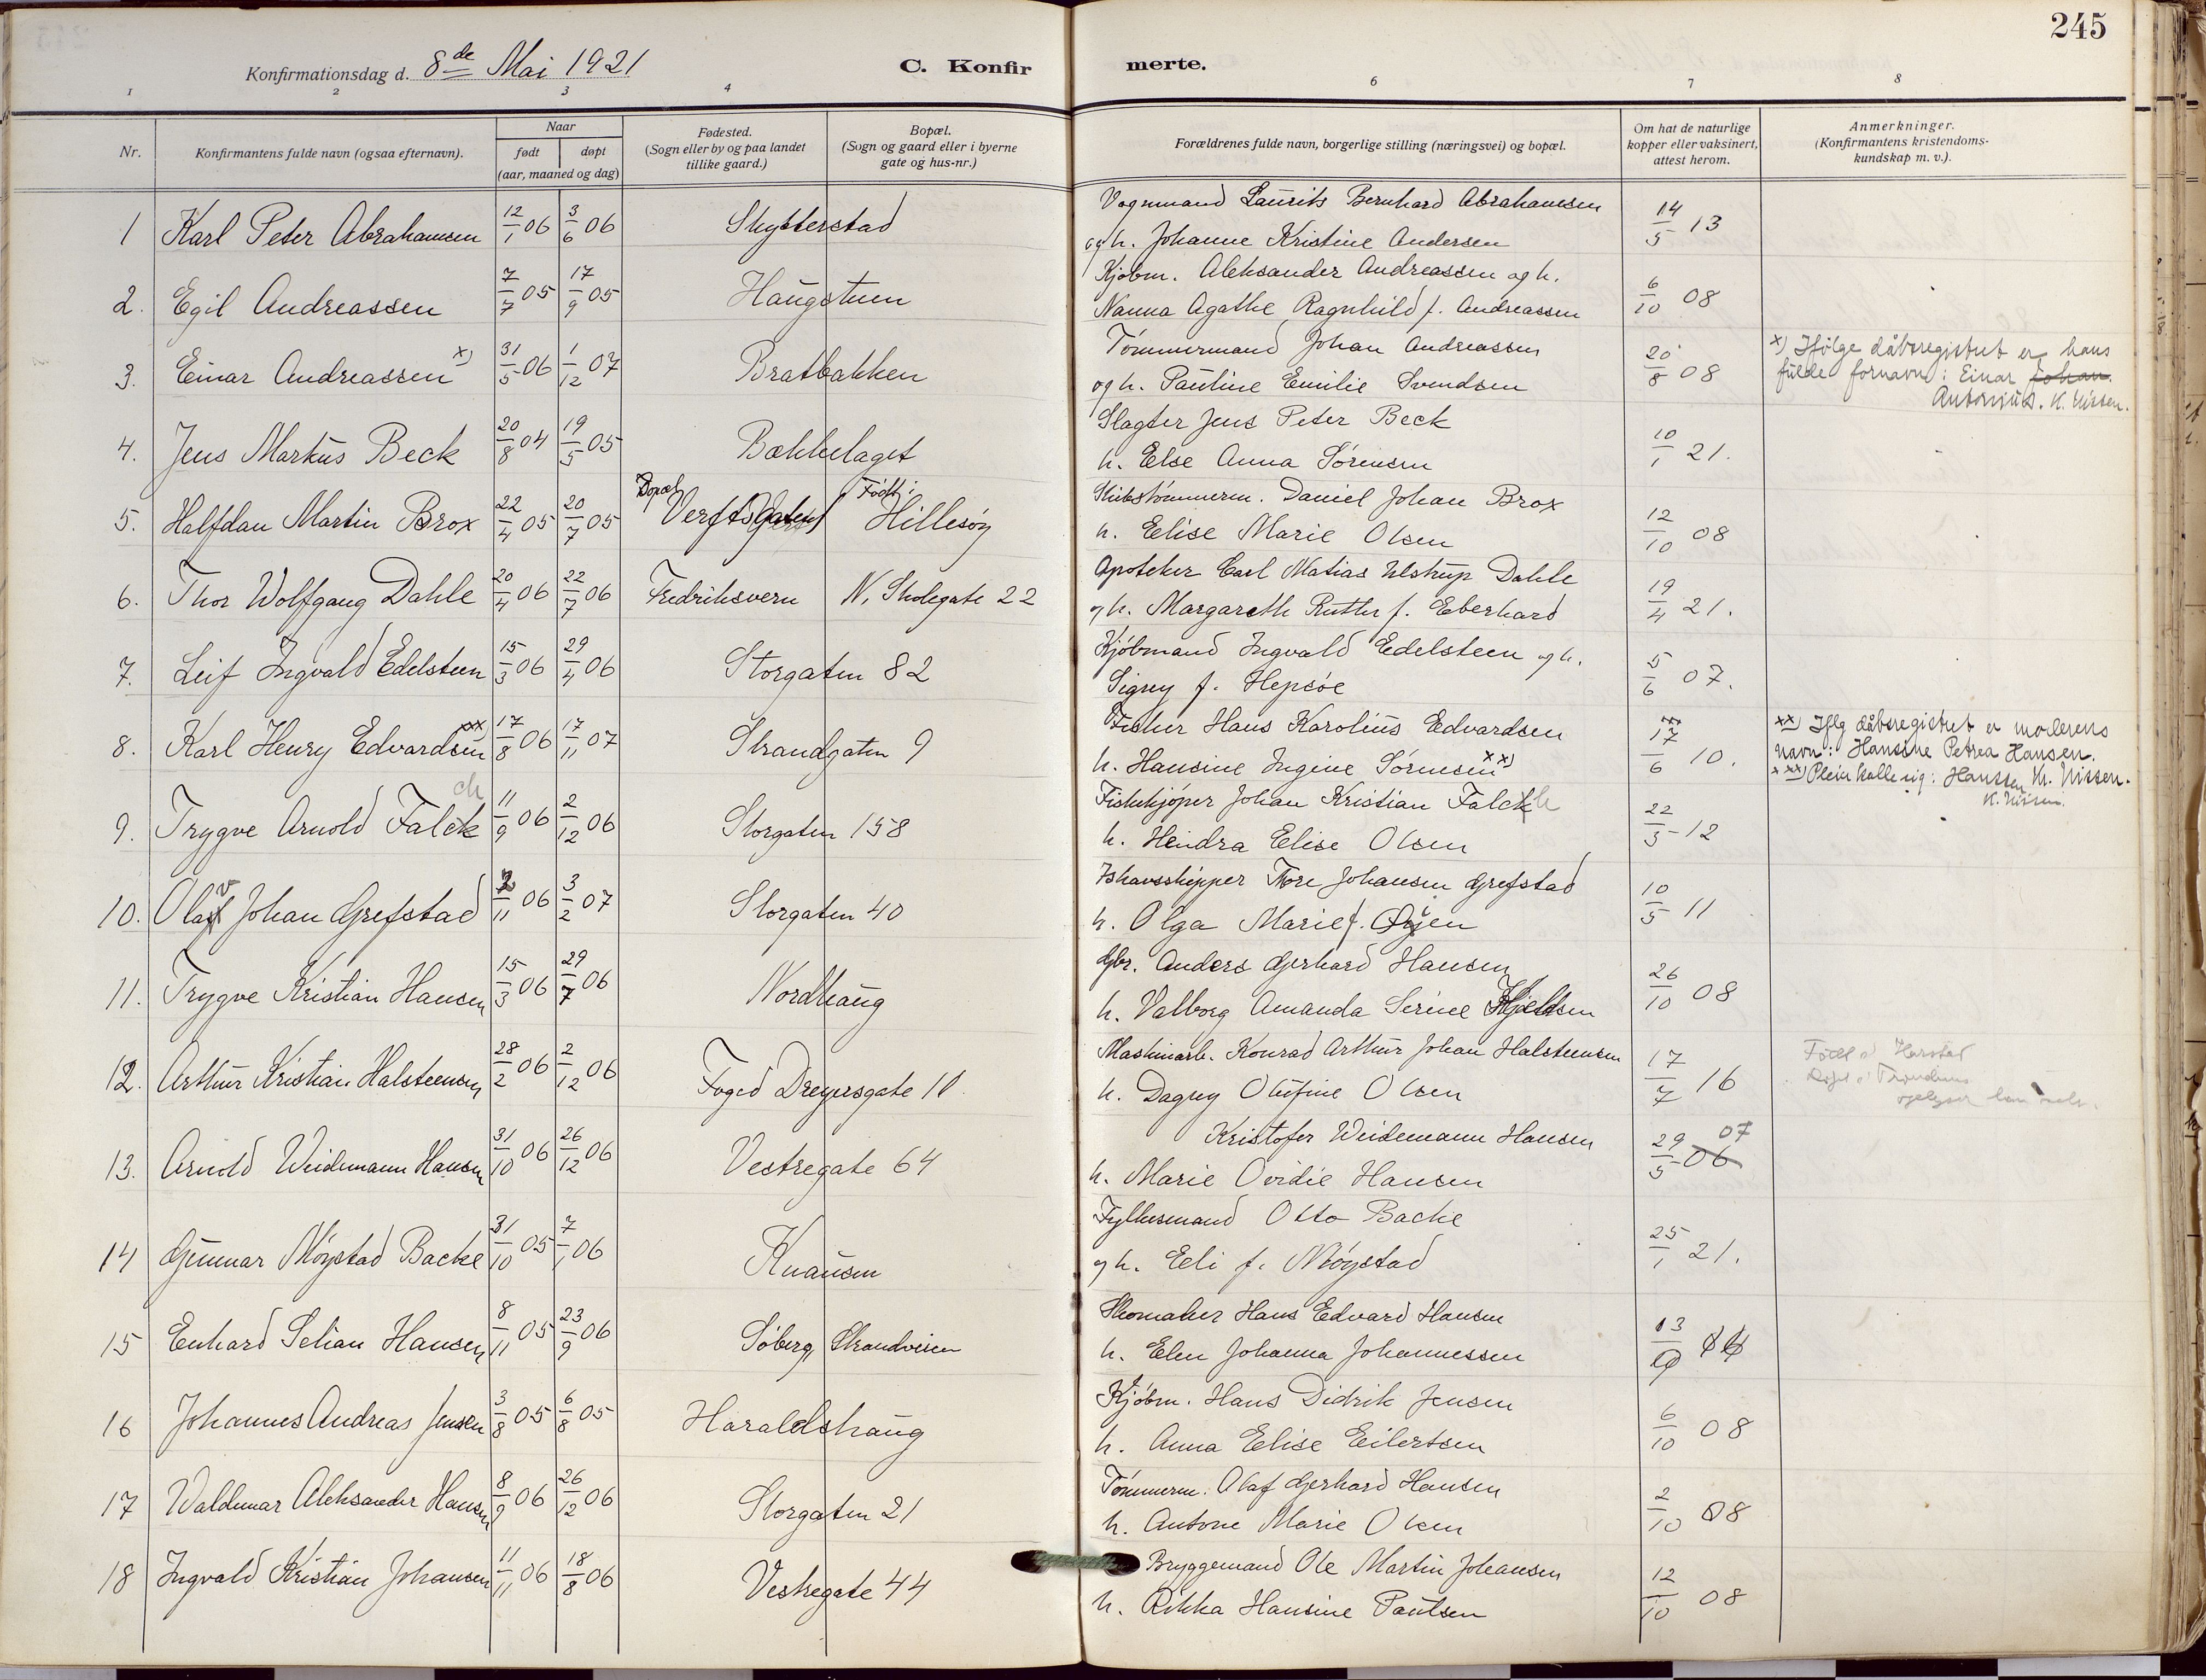 245
Konfirmationsdag d. 8de Mai 1921
C. Konfirmerte.
1 2 3 4 6 7 8
Nr.
Konfirmantens fulde navn (ogsaa efternavn).
Naar
født
døpt
(aar, maaned og dag)
Fødested.
(Sogn eller by og paa landet
tillike gaard.)
Bopæl.
(Sogn og gaard eller i byerne
gate og hus-nr.)
Forældrenes fulde navn, borgerlige stilling (næringsvei) og bopæl.
Om hat de naturlige
kopper eller vaksinert,
attest herom.
Anmerkninger.
(Konfirmantens kristendoms-
kundskap m. v.).
1 Karl Peter Abrahamsen 12/1 06 3/6 06 Skytterstad
Vognmand Laurits Bernhard Abrahamsen
og h. Johanne Kristine Andersen
14/5 13
2. Egil Andreassen 7/7 05 17/9 05 Haugstuen
Kjøbm. Aleksander Andreassen og h.
Nanna Agathe Ragnhild f. Andreassen
6/10 08
3. Einar Andreassen x) 31/5 06 1/12 07 Bratbakken
Tømmermand Johan Andreassen
og h. Pauline Emilie Svendsen
20/8 08
x) Ifølge dåbsregistret er hans
fulde fornavn: Einar Johan
Antonius. K. Nissen.
4. Jens Markus Beck 20/8 04 19/5 05 Bækkelaget
Slagter Jens Peter Beck
h. Else Anna Sørensen
10/1 21.
5. Halfdan Martin Brox 22/4 05 20/7 05 Bopæl Verftsgaten Født: Hillesøy
Skibstømmerm. Daniel Johan Brox
h. Elise Marie Olsen
12/10 08
6. Thor Wolfgang Dahle 20/4 06 22/7 06 Fredriksvern N. Skolegate 22
Apoteker Carl Matias Ulstrup Dahle
og h. Margareth Ruth f. Eberhard
19/4 21.
7. Leif Ingvald Edelsteen 15/3 06 29/4 06 Storgaten 82
Kjøbmand Ingvald Edelsteen og h.
Signy f. Hepsøe
5/6 07.
8. Karl Henry Edvardsen xxx 17/8 06 17/11 07 Strandgaten 9
Fisker Hans Karolius Edvardsen
h. Hansine Ingine Sørensen xx)
17/6 10.
xx) Iflg dåbsregistret er moderens
navn: Hansine Petrea Hansen.
K. Nissen.
9. Trygve Arnold Falck ch 11/9 06 2/12 06 Storgaten 158
Fiskekjøper Johan Kristian Falck
h. Heindra Elise Olsen
22/3 12
10. Olav Johan Grefstad 2/11 06 3/2 07 Storgaten 40
Ishavsskipper Tore Johansen Grefstad
h. Olga Marie f. Øyen
10/5 11
11. Trygve Kristian Hansen 15/3 06 29/7 06 Nordhaug
Gbr. Anders Gerhard Hansen
h. Valborg Amanda Serine Kjeldsen
26/10 08
12. Arthur Kristian Halsteensen 28/2 06 2/12 06 Foged Dreyersgate 10
Maskinarb. Konrad Arthur Johan Halsteensen
h. Dagny Olufine Olsen
17/7 16
Født i Harstad
13. Arnold Weidemann Hansen 31/10 06 26/12 06 Vestregate 64
Kristofer Weidemann Hansen
h. Marie Ovidie Hansen
29/5 06 07
14 Gunnar Møystad Backe 31/10 05 7/1 06 Knausen
Fylkesmand Otto Backe
og h. Eli f. Møystad
25/1 21.
15 Enhard Selian Hansen 8/11 05 23/9 06 Søberg, Strandveien
Skomaker Hans Edvard Hansen
h. Elen Johanna Johannessen
16 Johannes Andreas Jensen 3/8 05 6/8 05 Haraldshaug
Kjøbm. Hans Didrik Jensen
h. Anna Elise Eilertsen
6/10 08
17 Waldemar Aleksander Hansen 8/9 06 26/12 06 Storgaten 21
Tømmerm. Olaf Gerhard Hansen
h. Antone Marie Olsen
2/10 08
18 Ingvald Kristian Johansen 11/11 06 18/8 06 Vestregate 44
Bryggemand Ole Martin Johansen
h. Rikka Hansine Paulsen
12/10 08